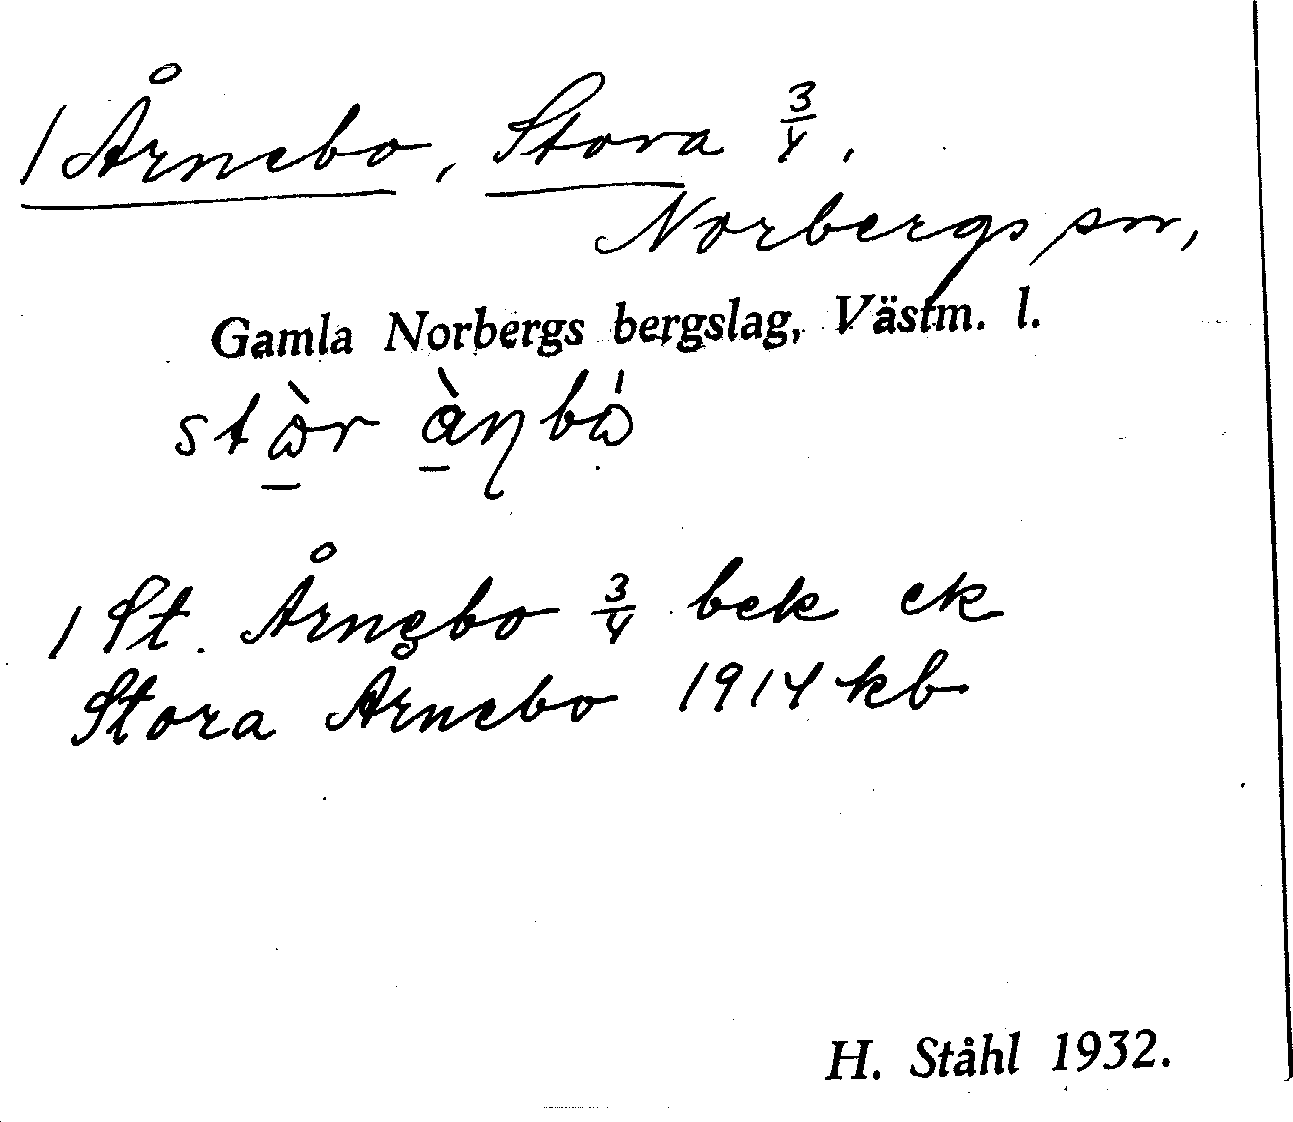 1 Årnebo, Stora 3/4,
Norbergs sn,
Gamla Norbergs bergslag, Västm. l.
1 St. Årnebo 3/4 bek ek
Stora Årnebo 1914 kb
H. Ståhl 1932.